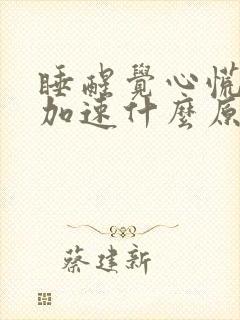 睡醒覺心慌
加速什麼原
蔡建新